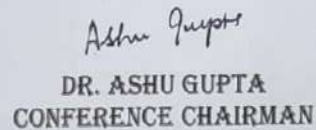 Ashu Gupta
DR. ASHU GUPTA
CONFERENCE CHAIRMAN